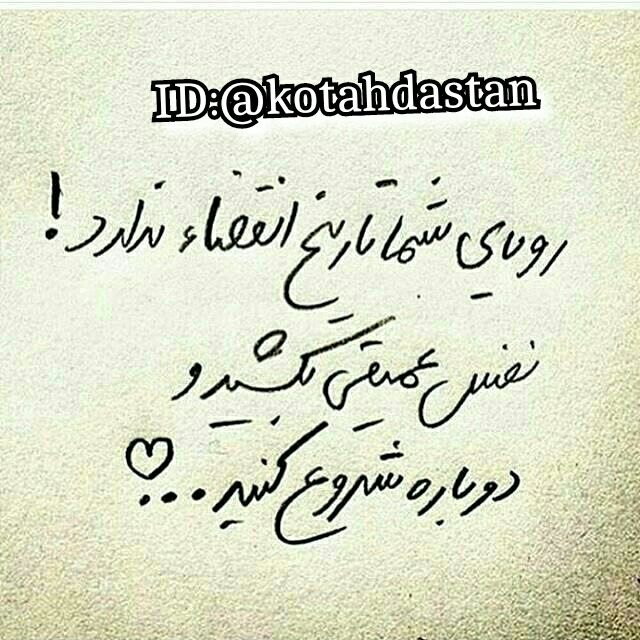 ID:@kotahdastan
رویای شما تاریخ انقضاء ندارد!
نفس عمیقی بکشید و
دوباره شروع کنید...♡